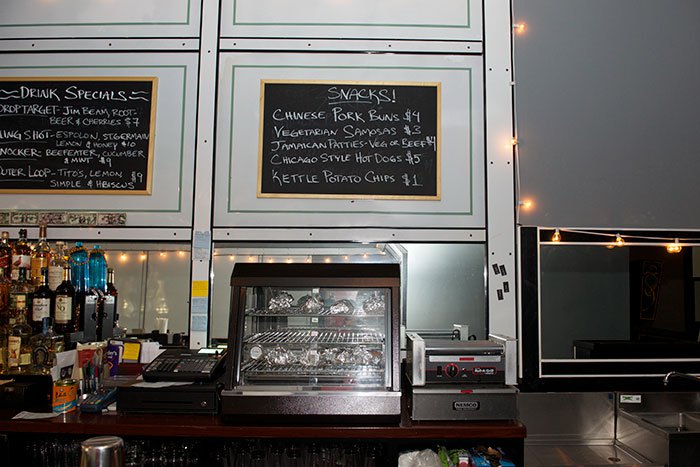 ~DRINK SPECIALS~
DROP TARGET- JIM BEAM, ROOT-
BEER & CHERRIES $7
SHOT- ESPOLON, ST. GERMAIN
LEMON & HONEY $10
KNOCKER- BEEFEATER, CUCUMBER
& MINT $9
OUTER LOOP- TITO'S, LEMON $9
SIMPLE & HIBISCUS
SNACKS!
CHINESE PORK BUNS $4
VEGETARIAN SAMOSAS $3
JAMAICAN PATTIES- VEG OR BEEF $4
CHICAGO STYLE HOT DOGS $5
KETTLE POTATO CHIPS $1
NEMCO